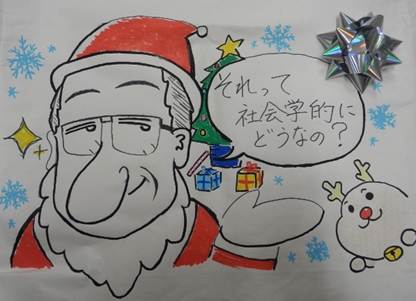 それって
社会学的に
どうなの？